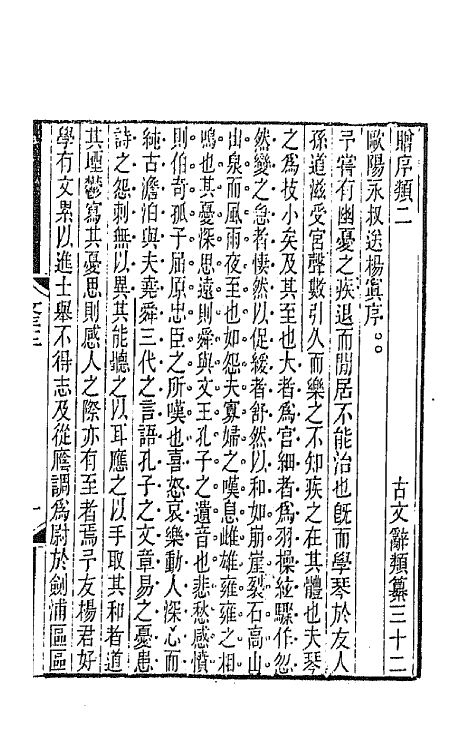 贈序類二　古文辭類纂三十二
歐陽永叔送楊寘序
予嘗有幽憂之疾退而閒居不能治也旣而學琴於友人
孫道滋受宮聲數引久而樂之不知疾之在其體也夫琴
之爲技小矣及其至也大者爲宮細者爲羽操絃驟作忽
然變之急者悽然以促緩者舒然以和如崩崖裂石高山
出泉而風雨夜至也如怨夫寡婦之嘆息雌雄雍雍之相
鳴也其憂深思遠則舜與文王孔子之遺音也悲愁感憤
則伯奇孤子屈原忠臣之所嘆也喜怒哀樂動人深心而
純古澹泊與夫堯舜三代之言語孔子之文章易之憂患
詩之怨刺無以異其能聽之以耳應之以手取其和者道
其堙鬱寫其憂思則感人之際亦有至者焉予友楊君好
學有文累以進士舉不得志及從廕調爲尉於劍浦區區